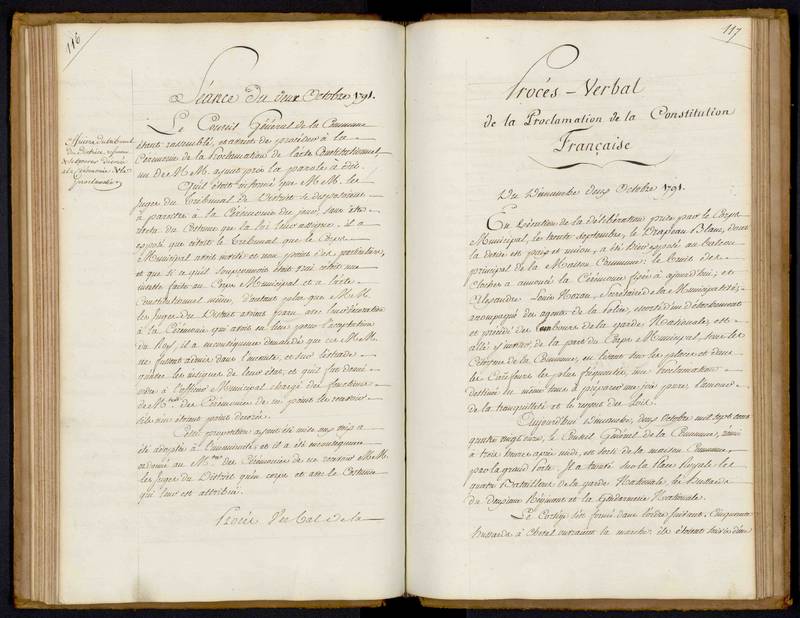 116
Séance du deux Octobre 1791.
Le Conseil Général de la Commune
étant rassemblé, avant de procéder à la
Cérémonie de la Proclamation de l'acte Constitutionnel,
un de M.M. ayant pris la parole a dit.
Qu'il étoit informé que M.M. les
Juges du Tribunal de District se disposoient
à paroitre à la Cérémonie du jour, sans être
vêtus du Costume que la loi leur assigne, il a
exposé que c'étoit le Tribunal que le Corps
Municipal avoit invité et non point des particuliers,
et que si ce qu'il soupçonnoit étoit vrai c'étoit une
insulte faite au Corps Municipal et à l'acte
Constitutionnel même, d'autant plus que M.M.
les Juges du District avoient paru avec leur décoration
à la Cérémonie qui avoit eu lieu pour l'acceptation
du Roy, il a en conséquence demandé que ces M.M.
ne fussent admis dans l'enceinte et sur l'estrade
qu'avec les insignes de leur état, et qu'il fut donné
ordre à l'officier Municipal chargé des fonctions
de M.tre des Cérémonies de ne point les recevoir
s'ils n'étoient point décorés.
Cette proposition ayant été mise aux voix a
été adoptée à l'unanimité, et il a été en conséquence
ordonné au M.tre des Cérémonies de ne recevoir M.M.
les Juges du District qu'en corps et avec le Costume
qui leur est attribué.
Procès Verbal de la
du tribunal
du District
cérémonie de la
proclamation
117
Procès-Verbal
de la Proclamation de la Constitution
Française
Du Dimanche deux Octobre 1791.
En Exécution de la délibération prise par le Corps
Municipal, le trente Septembre, le Drapeau Blanc, dont
la devise est paix et union, a été hier exposé au balcon
principal de la Maison Commune: le bruit des
cloches a annoncé la Cérémonie fixée à aujourd'hui; et
Alexandre Louis Mazan, Secrétaire de la Municipalité,
accompagné des agents de la police, escorté d'un détachement
et précédé des tambours de la garde Nationale, est
allé inviter de la part du Corps Municipal, tous les
Citoyens de la Commune, en lisant sur les places et dans
les Carrefours les plus fréquentés, une Proclamation
destinée en même tems à préparer une joie pure, l'amour
de la tranquillité et le respect des Loix.
Aujourd'hui Dimanche, deux Octobre mil sept cent
quatre vingt onze, le Conseil Général de la Commune, réuni
à trois heures après midi, est sorti de la maison Commune,
par la grand porte. Il a trouvé sur la Place Royale les
quatre Bataillons de la garde Nationale, les hussards
du deuxieme Régiment et la Gendarmerie Nationale.
Le Cortège s'est formé dans l'ordre suivant. Cinquante
hussards à cheval ouvroient la marche: ils étoient suivis d'une